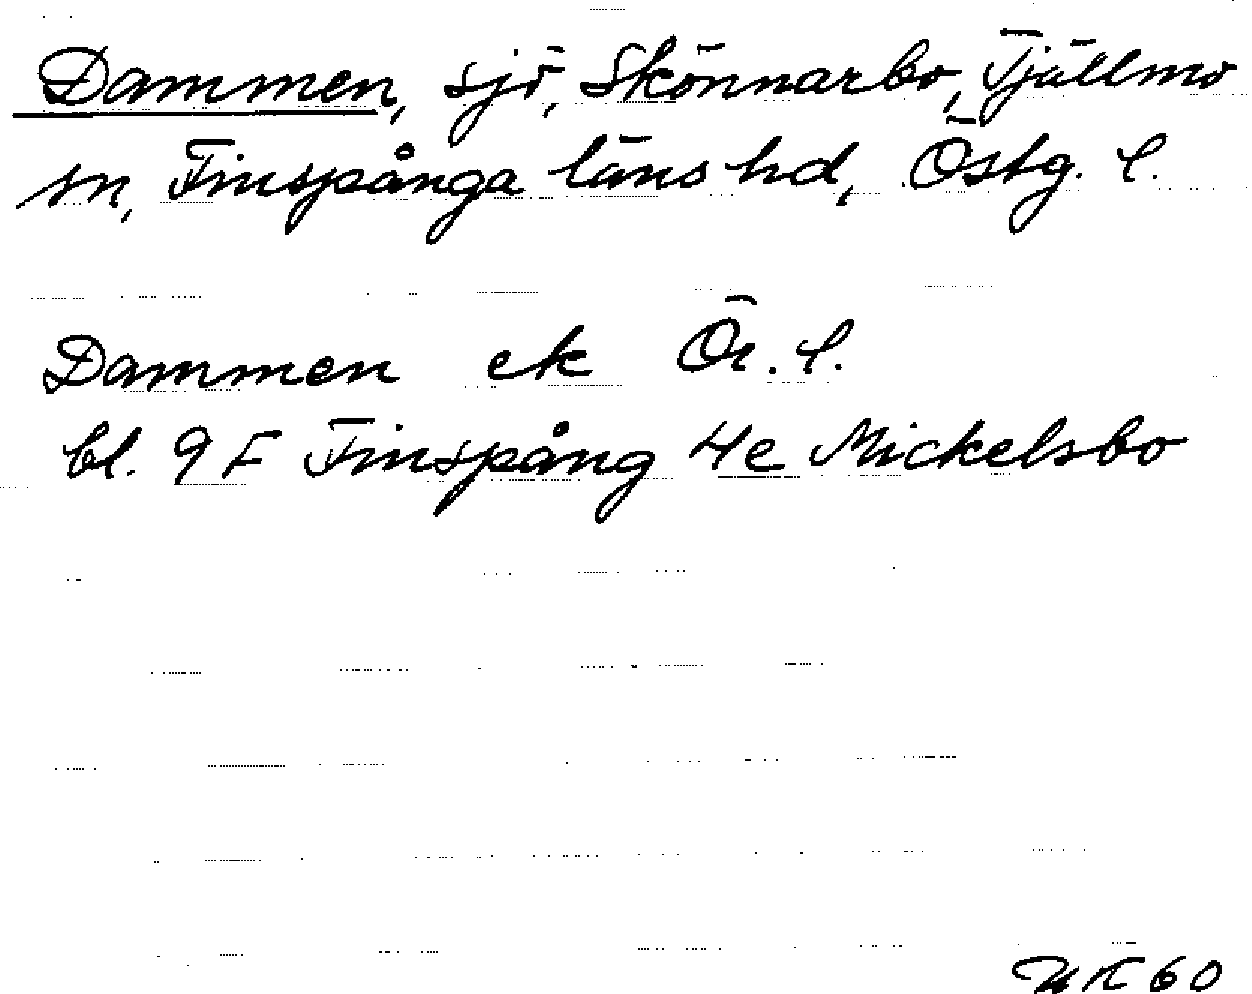 Dammen, sjö, Skönnarbo, Tjällmo
sn, Finspånga läns hd, Östg. l.
Dammen ek Ör. l.
bl. 9 F Finspång 4e Mickelsbo
60